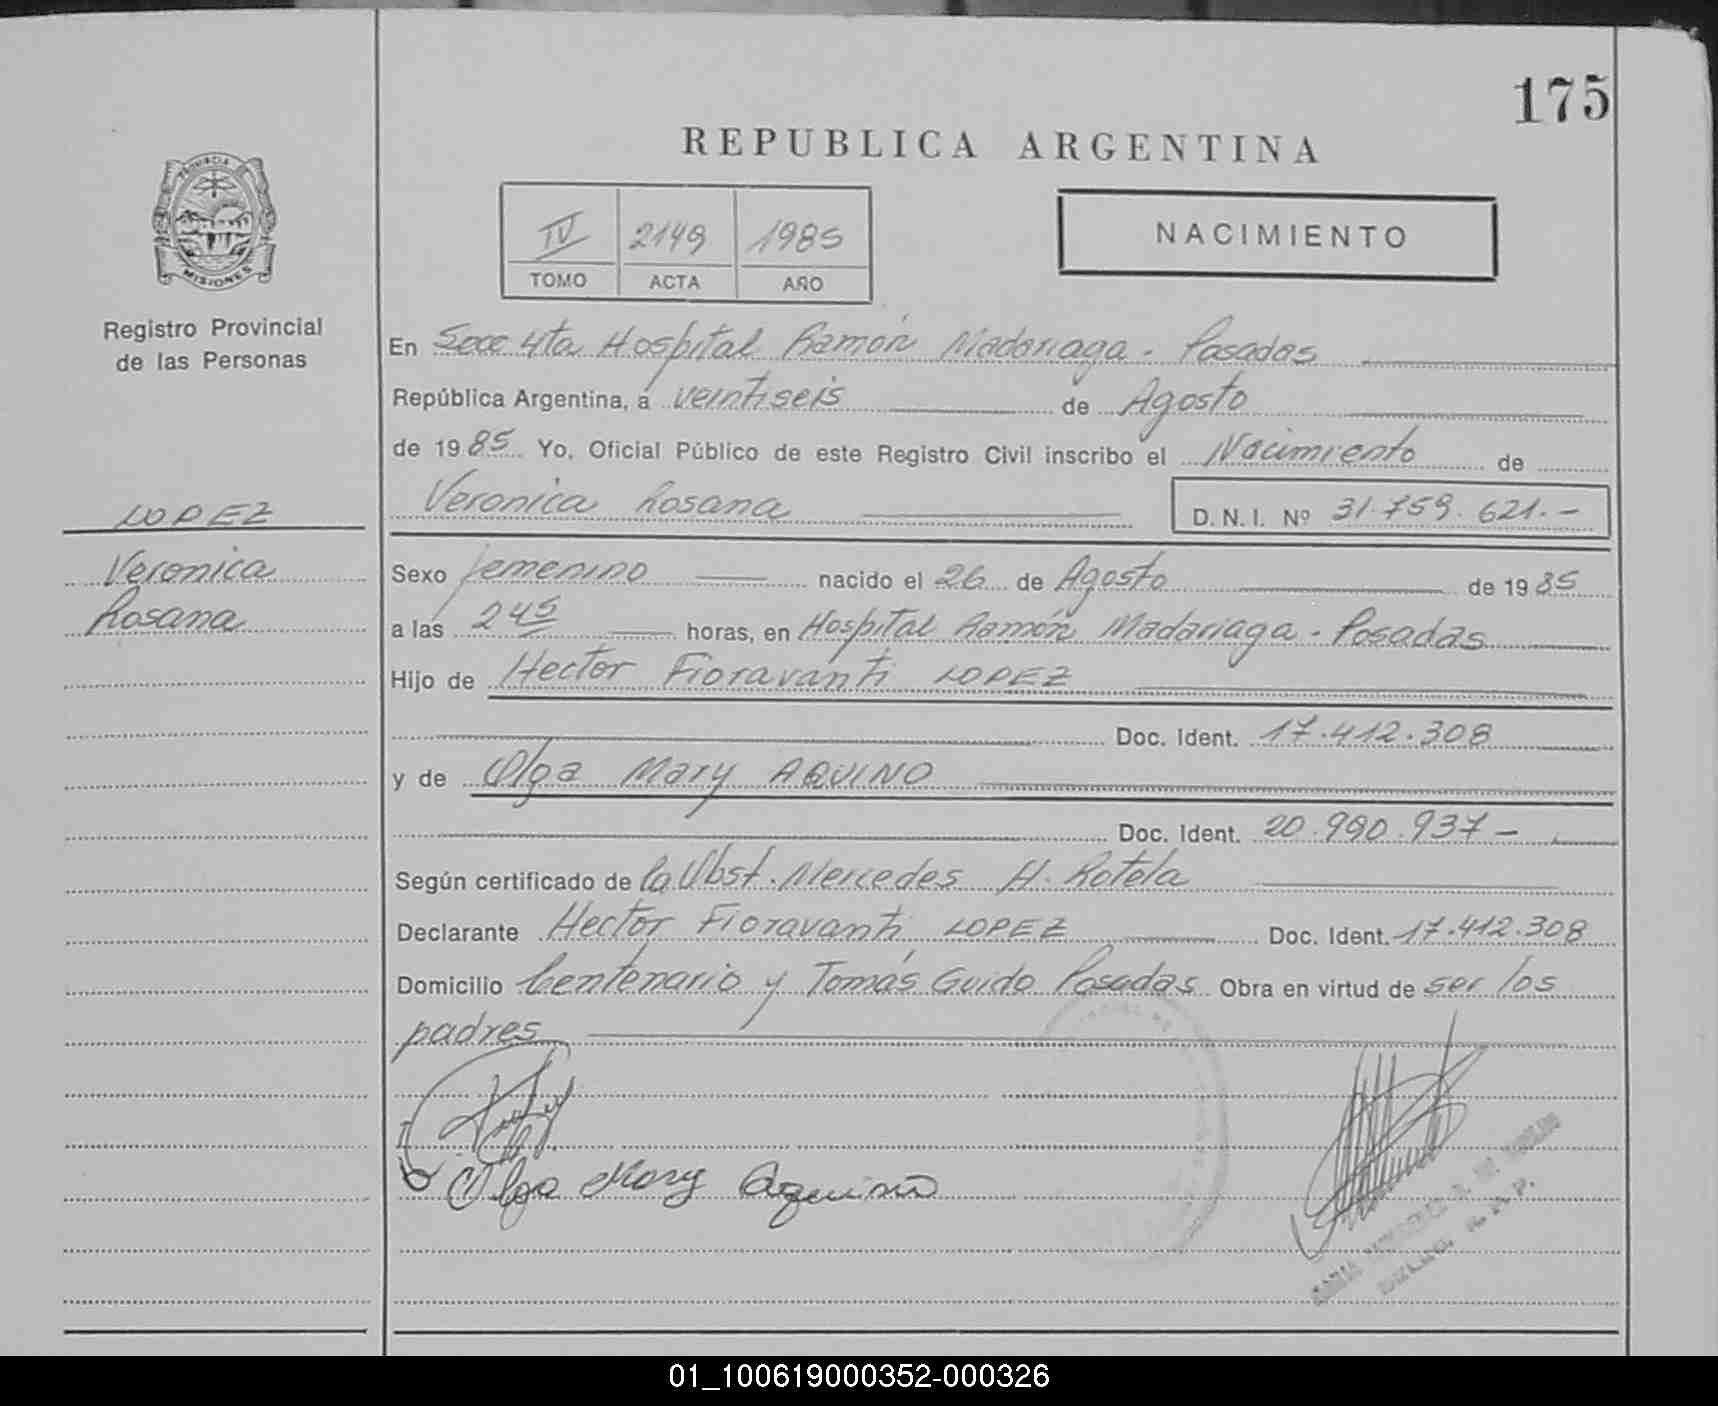 175
REPUBLICA ARGENTINA
PROVINCIA DE
MISIONES
Registro Provincial
de las Personas
IV 2149 1985
TOMO ACTA AÑO
NACIMIENTO
En Secc 4ta Hospital Ramón Madariaga - Posadas
República Argentina, a veintiseis de Agosto
de 1985 Yo, Oficial Público de este Registro Civil inscribo el Nacimiento de
Veronica Rosana D. N. I. Nº 31.759.621.-
LOPEZ
Veronica
Rosana
Sexo femenino nacido el 26 de Agosto de 1985
a las 245 horas, en Hospital Ramón Madariaga - Posadas
Hijo de Hector Fioravanti LOPEZ
Doc. Ident. 17.412.308
y de Olga Mary AQUINO
Doc. Ident. 20.990.937-
Según certificado de la Obst. Mercedes H. Rotela
Declarante Hector Fioravanti LOPEZ Doc. Ident. 17.412.308
Domicilio Centenario y Tomás Guido Posadas Obra en virtud de ser los
padres
Olga Mary Aquino
01_100619000352-000326